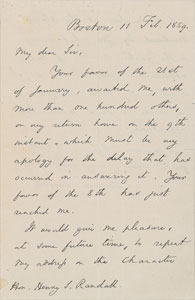 Boston 11 Feb. 1859.
My dear Sir,
Your favor of the 21st
of January, awaited me, with
more than one hundred others,
on my return home on the 9th
instant, which must be my
apology for the delay that has
occurred in answering it. Your
favor of the 8th has just
reached me.
It would give me pleasure,
at some future time, to repeat
my address on the Character
Hon. Henry S. Randall.